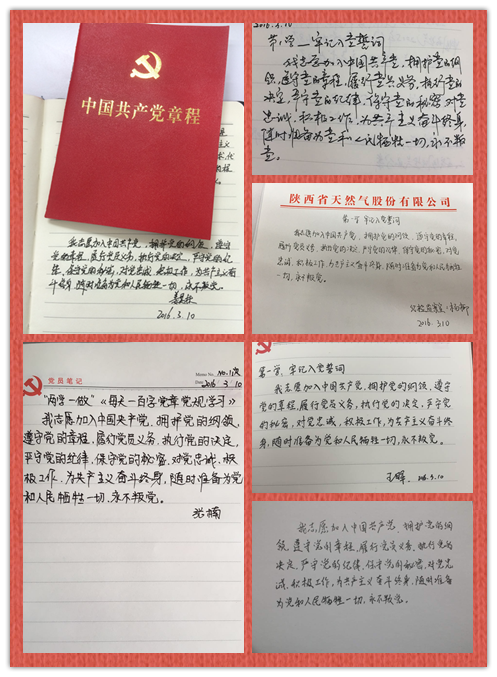 中国共产党章程
我志愿加入中国共产党，拥护党的纲领，遵守
党的章程，履行党员义务，执行党的决定，严守党的纪
律，保守党的秘密，对党忠诚，积极工作，为共产主义奋
斗终身，随时准备为党和人民牺牲一切，永不叛党。
2016.3.10
2016.3.10
第1学一牢记入党誓词
我志愿加入中国共产党，拥护党的纲
领，遵守党的章程，履行党员义务，执行党的
决定，严守党的纪律，保守党的秘密，对党
忠诚，积极工作，为共产主义奋斗终身，
随时准备为党和人民牺牲一切，永不叛
党。
陕西省天然气股份有限公司
第一学，牢记入党誓词
我志愿加入中国共产党，拥护党的纲领，遵守党的章程，
履行党员义务，执行党的决定，严守党的纪律，保守党的秘密，对党
忠诚，积极工作，为共产主义奋斗终身，随时准备为党和人民牺牲
一切，永不叛党。
2016.3.10
党员笔记
Memo No. NO.1次
Date 2016 3.10
“两学一做”《每天一百字党章党规学习》
我志愿加入中国共产党，拥护党的纲领，
遵守党的章程，履行党员义务，执行党的决定，
严守党的纪律，保守党的秘密，对党忠诚，积
极工作，为共产主义奋斗终身，随时准备为党
和人民牺牲一切，永不叛党。
张楠
第一学，牢记入党誓词
我志愿加入中国共产党，拥护党的纲领，遵守
党的章程，履行党员义务，执行党的决定，严守党
的秘密，对党忠诚，积极工作，为共产主义奋斗终身
，随时准备为党和人民牺牲一切，永不叛党。
王晖 2016.3.10
我志愿加入中国共产党，拥护党的纲
领，遵守党的章程，履行党员义务，执行党
的决定，严守党的纪律，保守党的秘密，对党忠
诚，积极工作，为共产主义奋斗终身，随时准备
为党和人民牺牲一切，永不叛党。